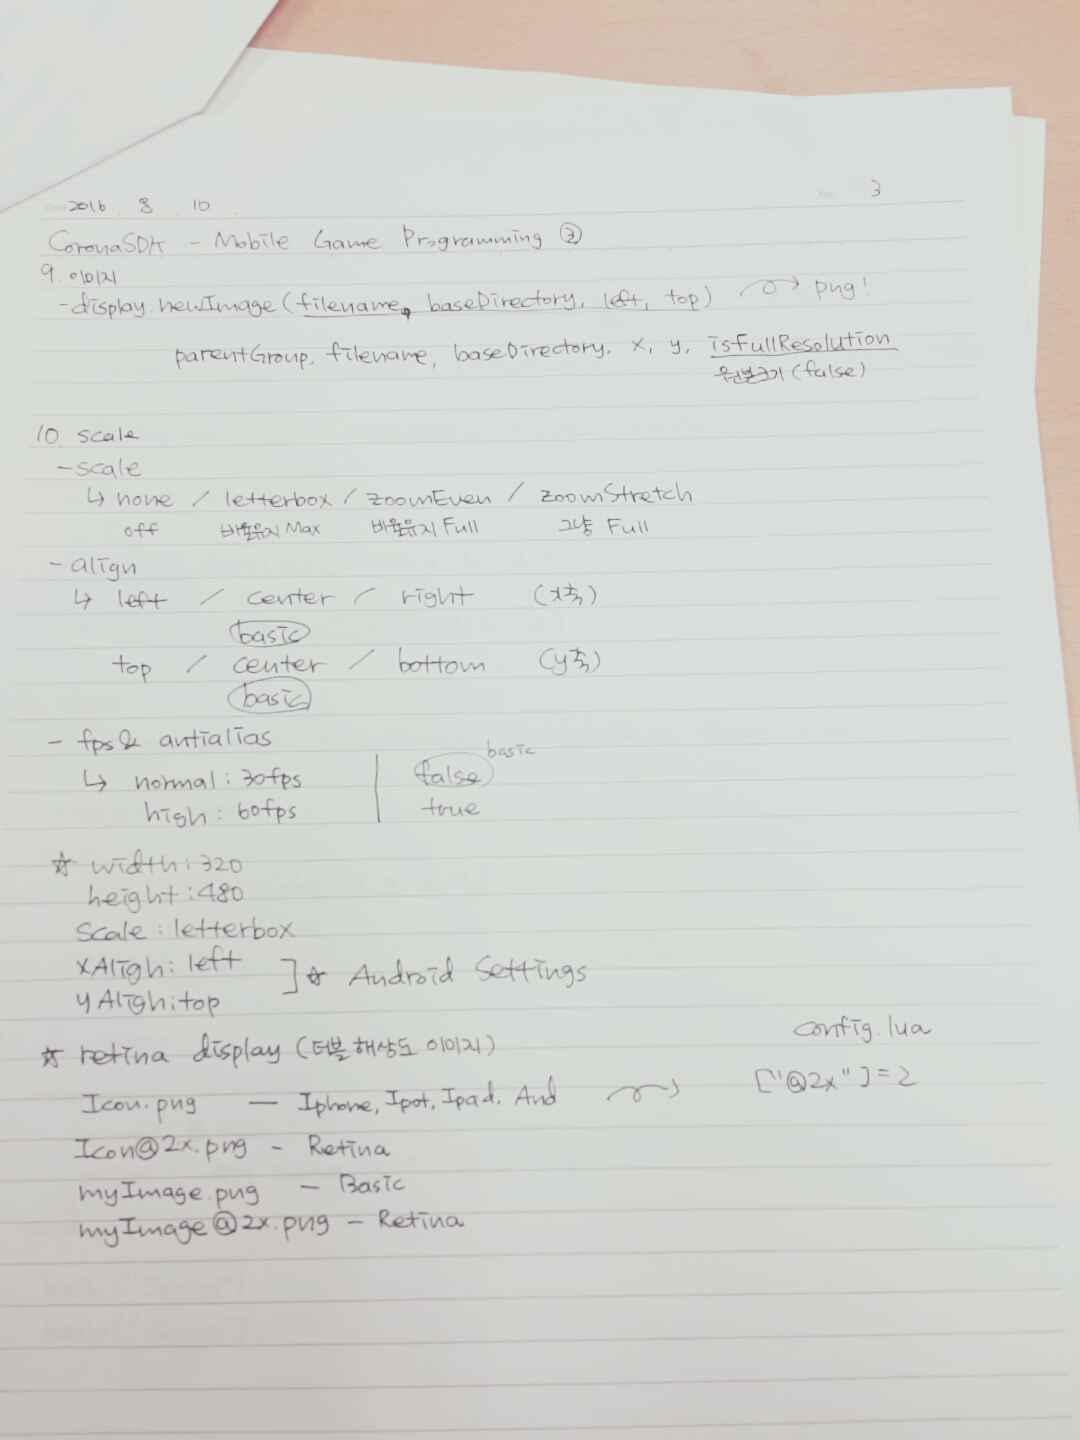 Date 2016 . 8 . 10 . No. 3
CoronaSDK - Mobile Game Programming ②
9. 이미지
- display.newImage (filename, baseDirectory, left, top) png!
parentGroup, filename, baseDirectory, x, y, isFullResolution
원본크기 (false)
10. scale
- scale
↳ none / letterbox / zoomEven / zoomStretch
off 비율유지 Max 비율유지 Full 그냥 Full
- align
↳ left / center / right (x축)
basic
top / center / bottom (y축)
basic
- fps & antialias
basic
↳ normal : 30fps | false
high : 60fps | true
☆ width : 320
height : 480
Scale : letterbox
xAligh : left ] ☆ Android Settings
yAligh : top
config.lua
☆ retina display (더블 해상도 이미지)
Icon.png — Iphone, Ipot, Ipad, And ["@2x"] = 2
Icon@2x.png - Retina
myImage.png - Basic
myImage@2x.png - Retina